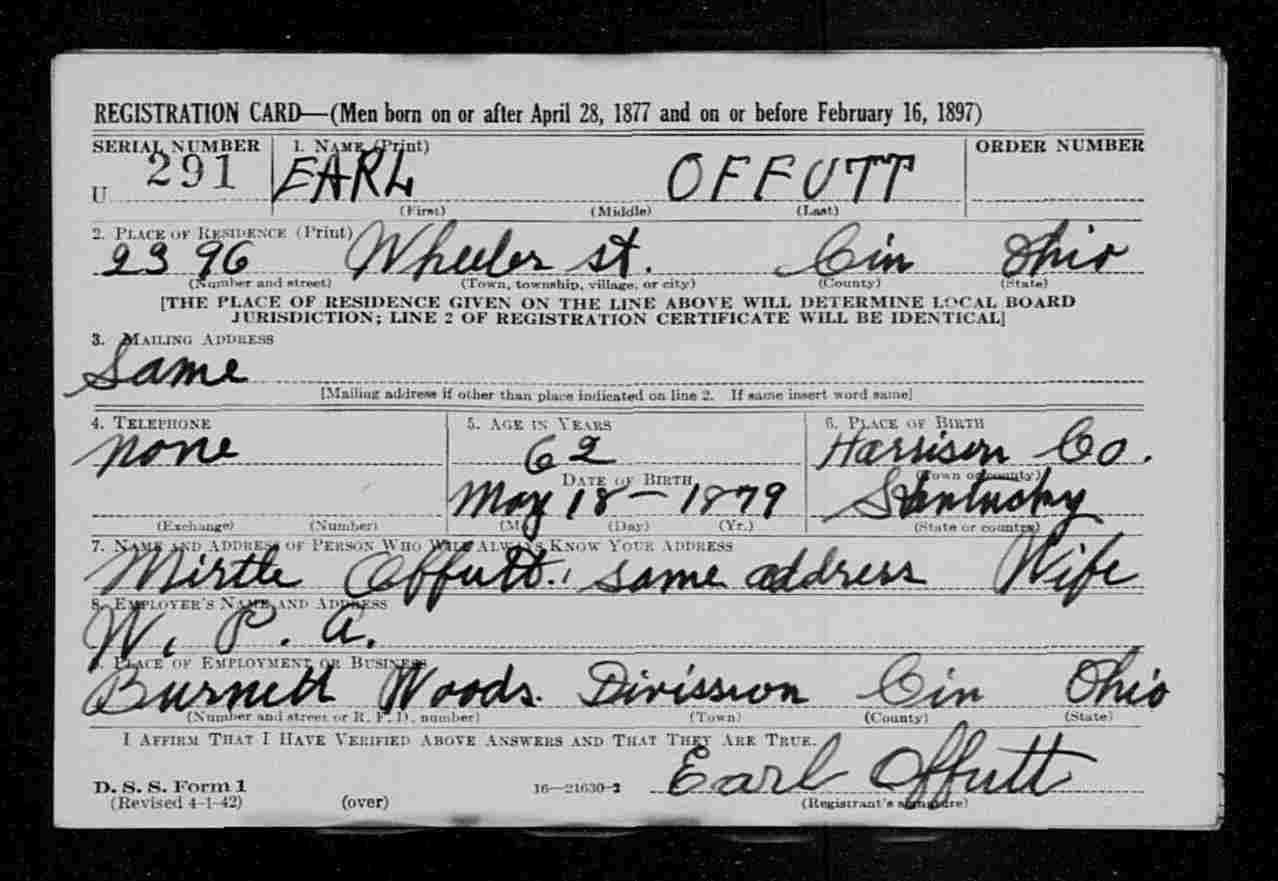 REGISTRATION CARD—(Men born on or after April 28, 1877 and on or before February 16, 1897)
SERIAL NUMBER 1. NAME (Print) ORDER NUMBER
U 291 EARL OFFUTT
(First) (Middle) (Last)
2. PLACE OF RESIDENCE (Print)
2396 Wheeler St. Cin Ohio
(Number and street) (Town, township, village, or city) (County) (State)
[THE PLACE OF RESIDENCE GIVEN ON THE LINE ABOVE WILL DETERMINE LOCAL BOARD
JURISDICTION; LINE 2 OF REGISTRATION CERTIFICATE WILL BE IDENTICAL]
3. MAILING ADDRESS
Same
[Mailing address if other than place indicated on line 2. If same insert word same]
4. TELEPHONE 5. AGE IN YEARS 6. PLACE OF BIRTH
none 62 Harrison Co.
DATE OF BIRTH (Town or county)
May 18 - 1879 Kentucky
(Exchange) (Number) (Mo.) (Day) (Yr.) (State or country)
7. NAME AND ADDRESS OF PERSON WHO WILL ALWAYS KNOW YOUR ADDRESS
Mirtle Offutt., same address Wife
8. EMPLOYER'S NAME AND ADDRESS
W. P. A.
9. PLACE OF EMPLOYMENT OR BUSINESS
Burnett Woods. Divission Cin Ohio
(Number and street or R. F. D. number) (Town) (County) (State)
I AFFIRM THAT I HAVE VERIFIED ABOVE ANSWERS AND THAT THEY ARE TRUE.
D. S. S. Form 1 16—21630-2 Earl Offutt
(Revised 4-1-42) (over) (Registrant's signature)